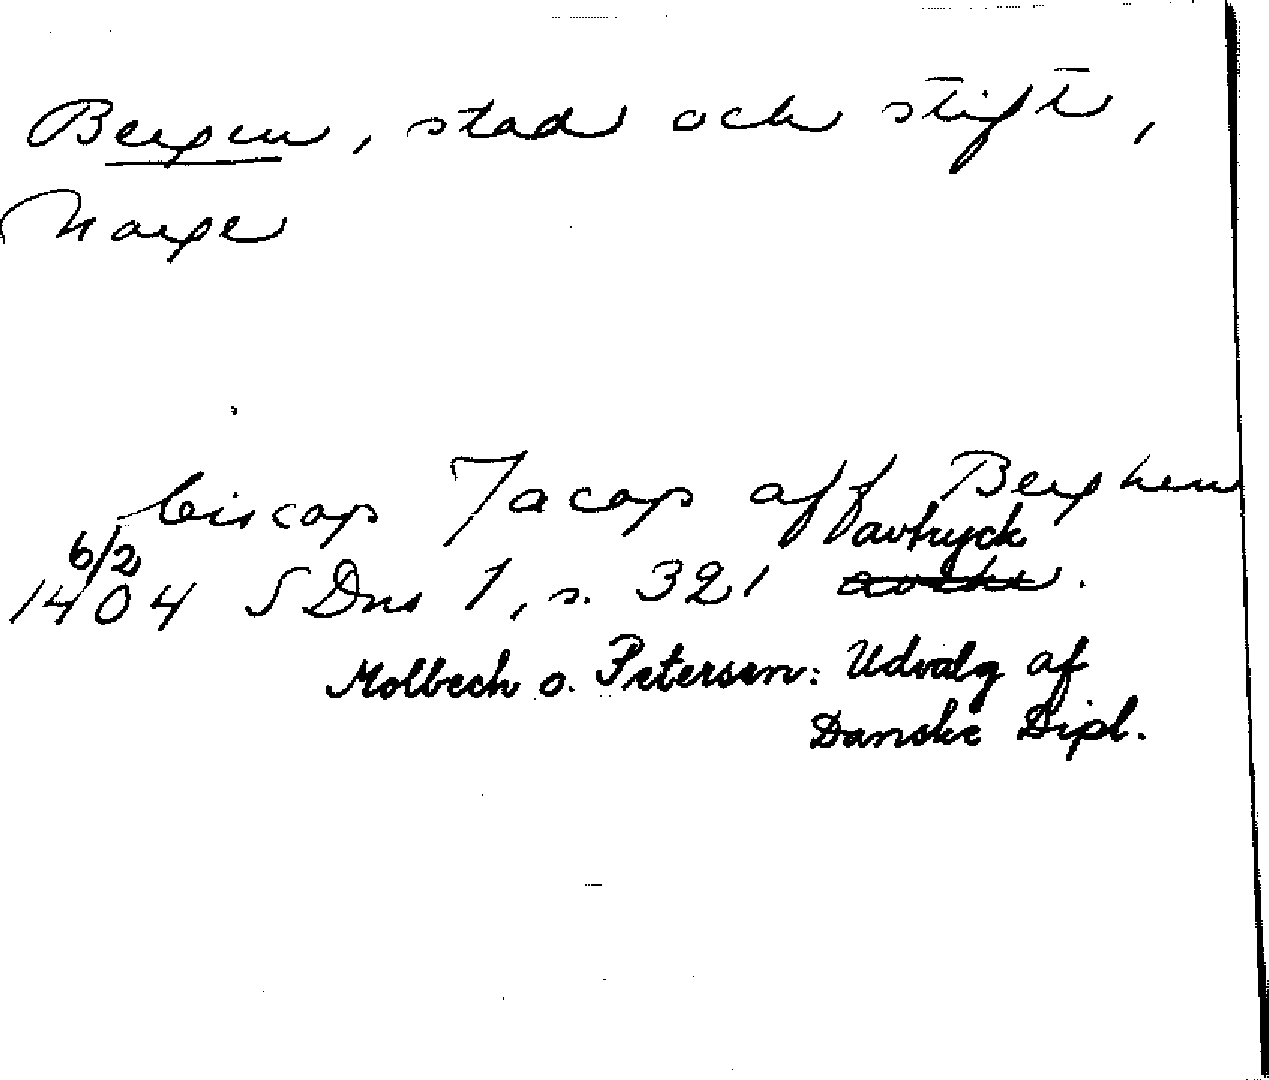 Bergen, stad och stift,
Norge
biscop Jacop aff Berghen
avtryck
6/2
1404 SDns 1, s. 321
Molbech o. Petersen: Udvalg af
Danske Dipl.